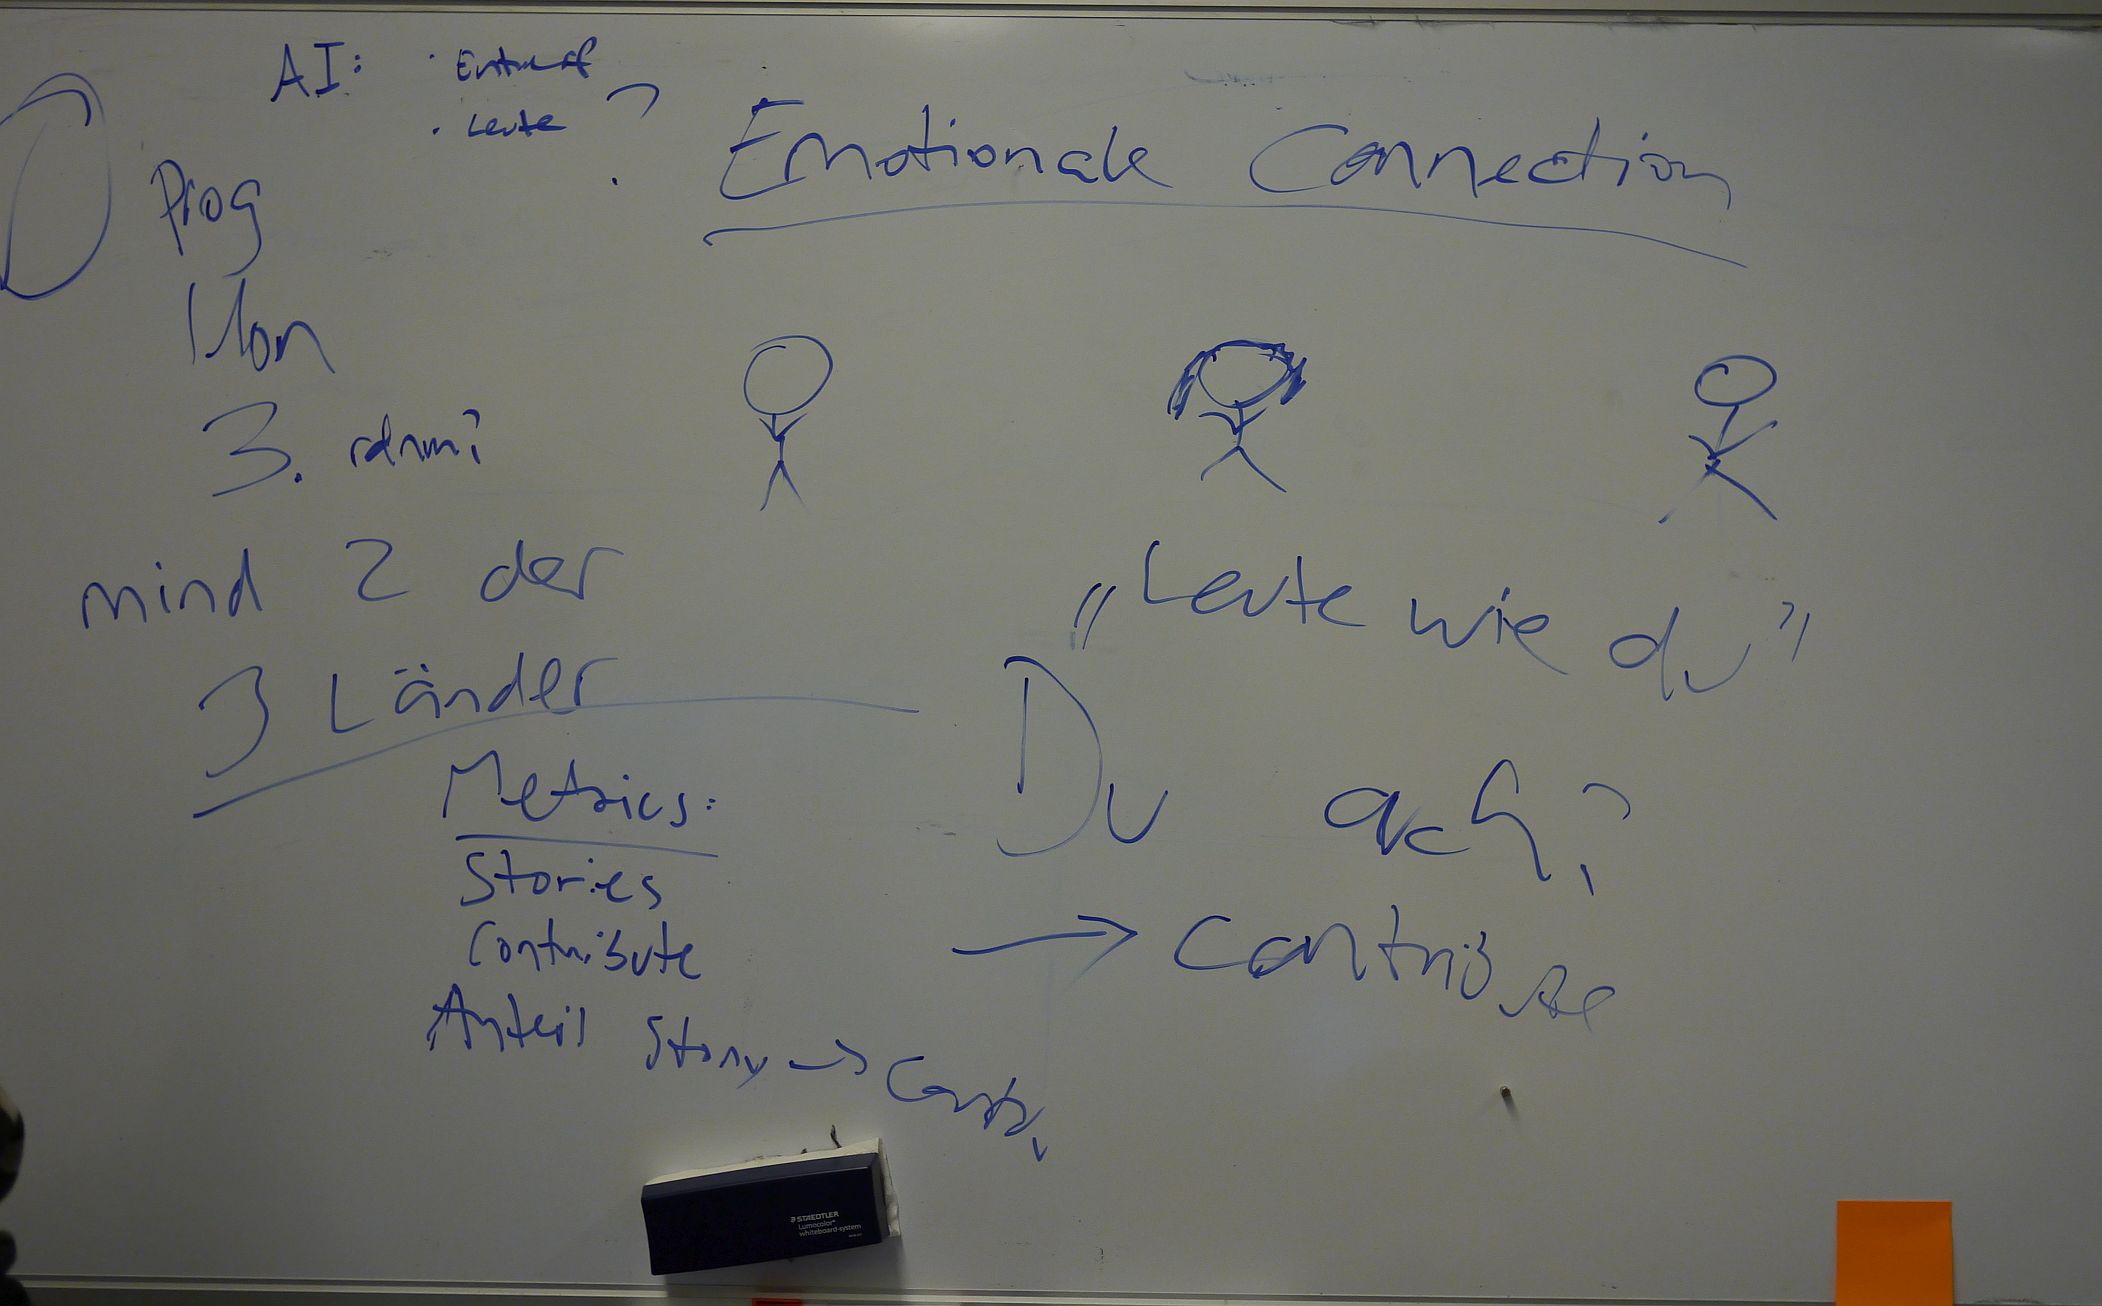 AI: · Entwurf
· Leute
?
Emotionale Connection
Prog
Mon
3.
mind 2 der
3 Länder
„Leute wie du"
Du ach?
→ Contribute
Metrics:
Stories
Contribute
Anteil Story → Contr.
STAEDTLER
Lumocolor®
whiteboard-system